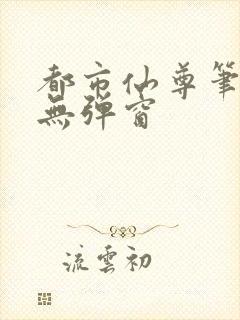 都市仙尊筆
無彈窗
流雲初